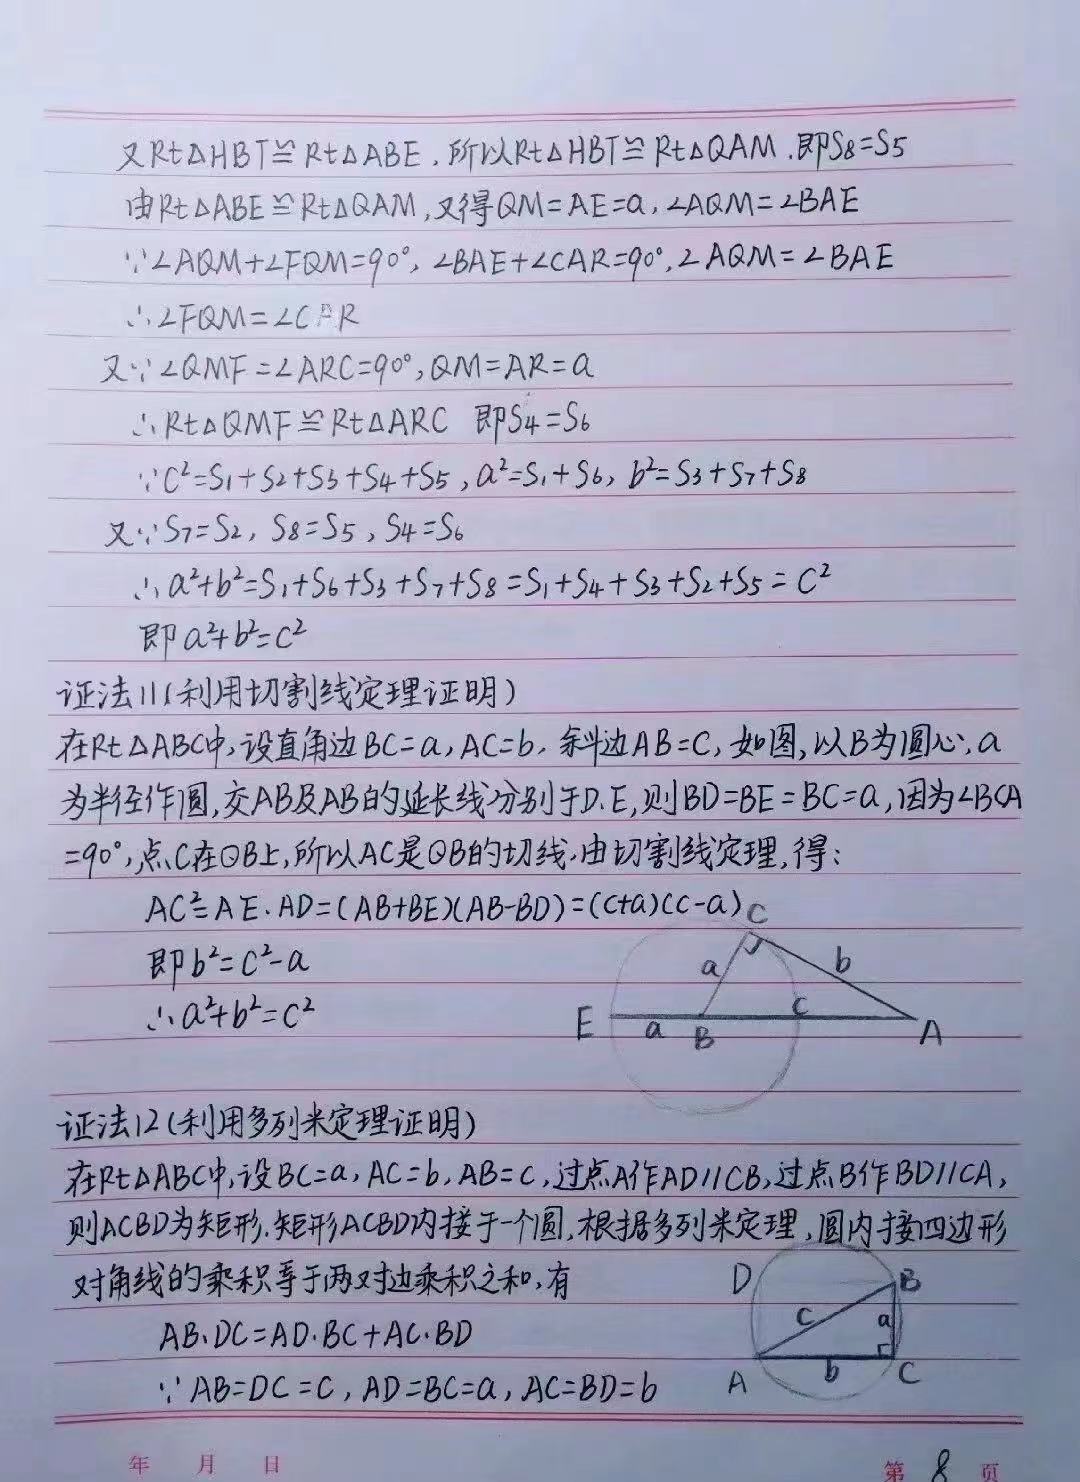 又Rt△HBT≌Rt△ABE,所以Rt△HBT≌Rt△QAM.即S8=S5
由Rt△ABE≌Rt△QAM,又得QM=AE=a,∠AQM=∠BAE
∵∠AQM+∠FQM=90°,∠BAE+∠CAR=90°,∠AQM=∠BAE
∴∠FQM=∠CAR
又∵∠QMF=∠ARC=90°,QM=AR=a
∴Rt△QMF≌Rt△ARC 即S4=S6
∵c²=S1+S2+S3+S4+S5,a²=S1+S6,b²=S3+S7+S8
又∵S7=S2,S8=S5,S4=S6
∴a²+b²=S1+S6+S3+S7+S8=S1+S4+S3+S2+S5=c²
即a²+b²=c²
证法11(利用切割线定理证明)
在Rt△ABC中,设直角边BC=a,AC=b,斜边AB=C,如图,以B为圆心,a
为半径作圆,交AB及AB的延长线分别于D.E,则BD=BE=BC=a,因为∠BCA
=90°,点C在⊙B上,所以AC是⊙B的切线.由切割线定理,得:
AC²=AE·AD=(AB+BE)(AB-BD)=(c+a)(c-a)
C
即b²=c²-a
a
b
∴a²+b²=c²
E
a
B
c
A
证法12(利用多列米定理证明)
在Rt△ABC中,设BC=a,AC=b,AB=c,过点A作AD//CB,过点B作BD//CA,
则ACBD为矩形.矩形ACBD内接于一个圆,根据多列米定理,圆内接四边形
对角线的乘积等于两对边乘积之和,有
D
B
AB·DC=AD·BC+AC·BD
c
a
∵AB=DC=C,AD=BC=a,AC=BD=b
A
b
C
年 月 日
第 8 页